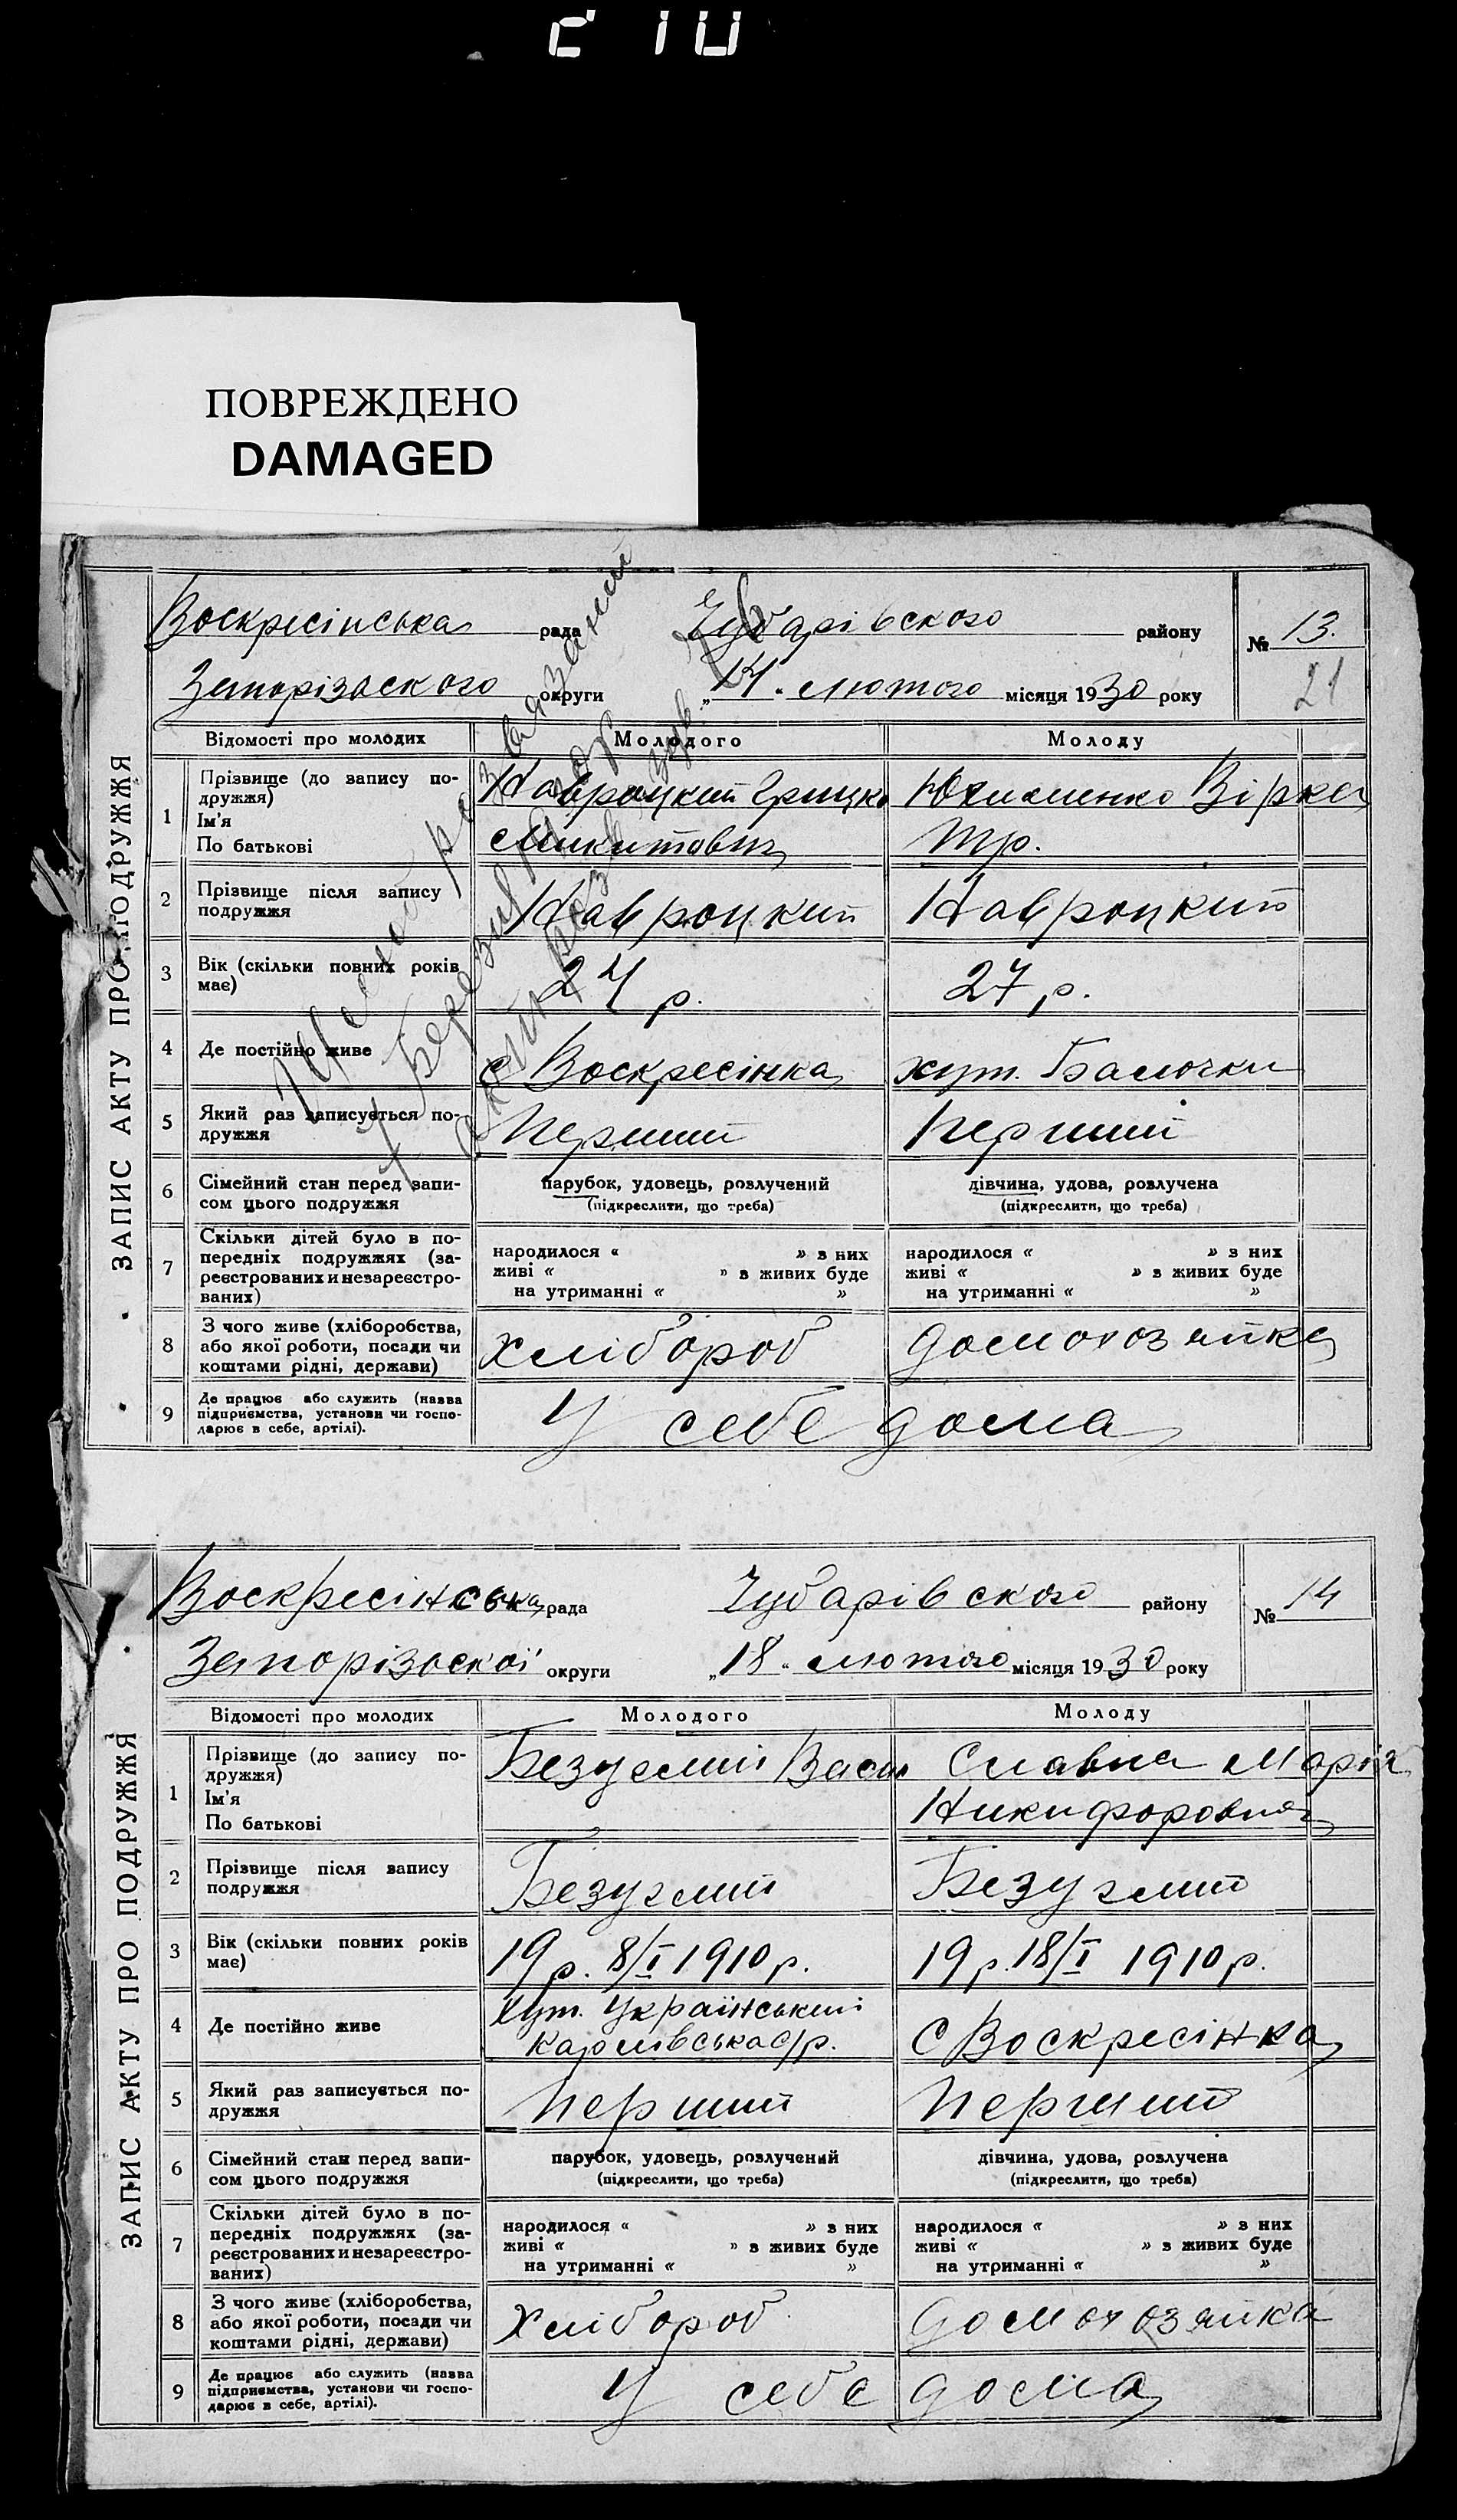 ПОВРЕЖДЕНО
DAMAGED
ЗАПИС АКТУ ПРО ПОДРУЖЖЯ
Воскресінська рада Чубарівского району № 13.
Запорізького округи „14“ лютого місяця 1930 року 21
Відомості про молодих Молодого Молоду
1 Прізвище (до запису по-
дружжя)
Ім'я
По батькові
Навроцкий Грицко
Микитович
Юхименко Вірка
Тр.
2 Прізвище після запису
подружжя
Навроцкий Навроцкий
3 Вік (скільки повних років
має)
24 р. 27 р.
4 Де постійно живе с Воскресінка хут. Балочки
5 Який раз записується по-
дружжя
Перший Перший
6 Сімейний стан перед запи-
сом цього подружжя
парубок, удовець, розлучений
(підкреслити, що треба)
дівчина, удова, розлучена
(підкреслити, що треба)
7 Скільки дітей було в по-
передніх подружжях (за-
реєстрованих и незареєстро-
ваних)
народилося « » з них
живі « » з живих буде
на утриманні « »
народилося « » з них
живі « » з живих буде
на утриманні « »
8 З чого живе (хліборобства,
або якої роботи, посади чи
коштами рідні, держави)
хлібороб домохозяйка
9 Де працює або служить (назва
підприємства, установи чи госпо-
дарює в себе, артілі).
У себе дома
ЗАПИС АКТУ ПРО ПОДРУЖЖЯ
Воскресінська рада Чубарівского району № 14
Запорізької округи „18“ лютого місяця 1930 року
Відомості про молодих Молодого Молоду
1 Прізвище (до запису по-
дружжя)
Ім'я
По батькові
Безуглий Васи
Славна Марія
Никифоровна
2 Прізвище після запису
подружжя
Безуглий Безуглий
3 Вік (скільки повних років
має)
19 р. 8/I 1910 р. 19 р. 18/I 1910 р.
4 Де постійно живе
хут. Український
Карлівська с/р.
с Воскресінка
5 Який раз записується по-
дружжя
Перший Перший
6 Сімейний стан перед запи-
сом цього подружжя
парубок, удовець, розлучений
(підкреслити, що треба)
дівчина, удова, розлучена
(підкреслити, що треба)
7 Скільки дітей було в по-
передніх подружжях (за-
реєстрованих и незареєстро-
ваних)
народилося « » з них
живі « » з живих буде
на утриманні « »
народилося « » з них
живі « » з живих буде
на утриманні « »
8 З чого живе (хліборобства,
або якої роботи, посади чи
коштами рідні, держави)
Хлібороб домохозяйка
9 Де працює або служить (назва
підприємства, установи чи госпо-
дарює в себе, артілі).
У себе дома